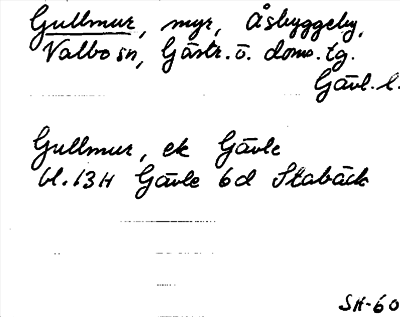 Gullmur, myr, Åsbyggeby,
Valbo sn, Gästr. ö. doms. tg.
Gävl. l.
Gullmur, ek Gävle
bl. 13H Gävle 6d Stabäck
SH-60